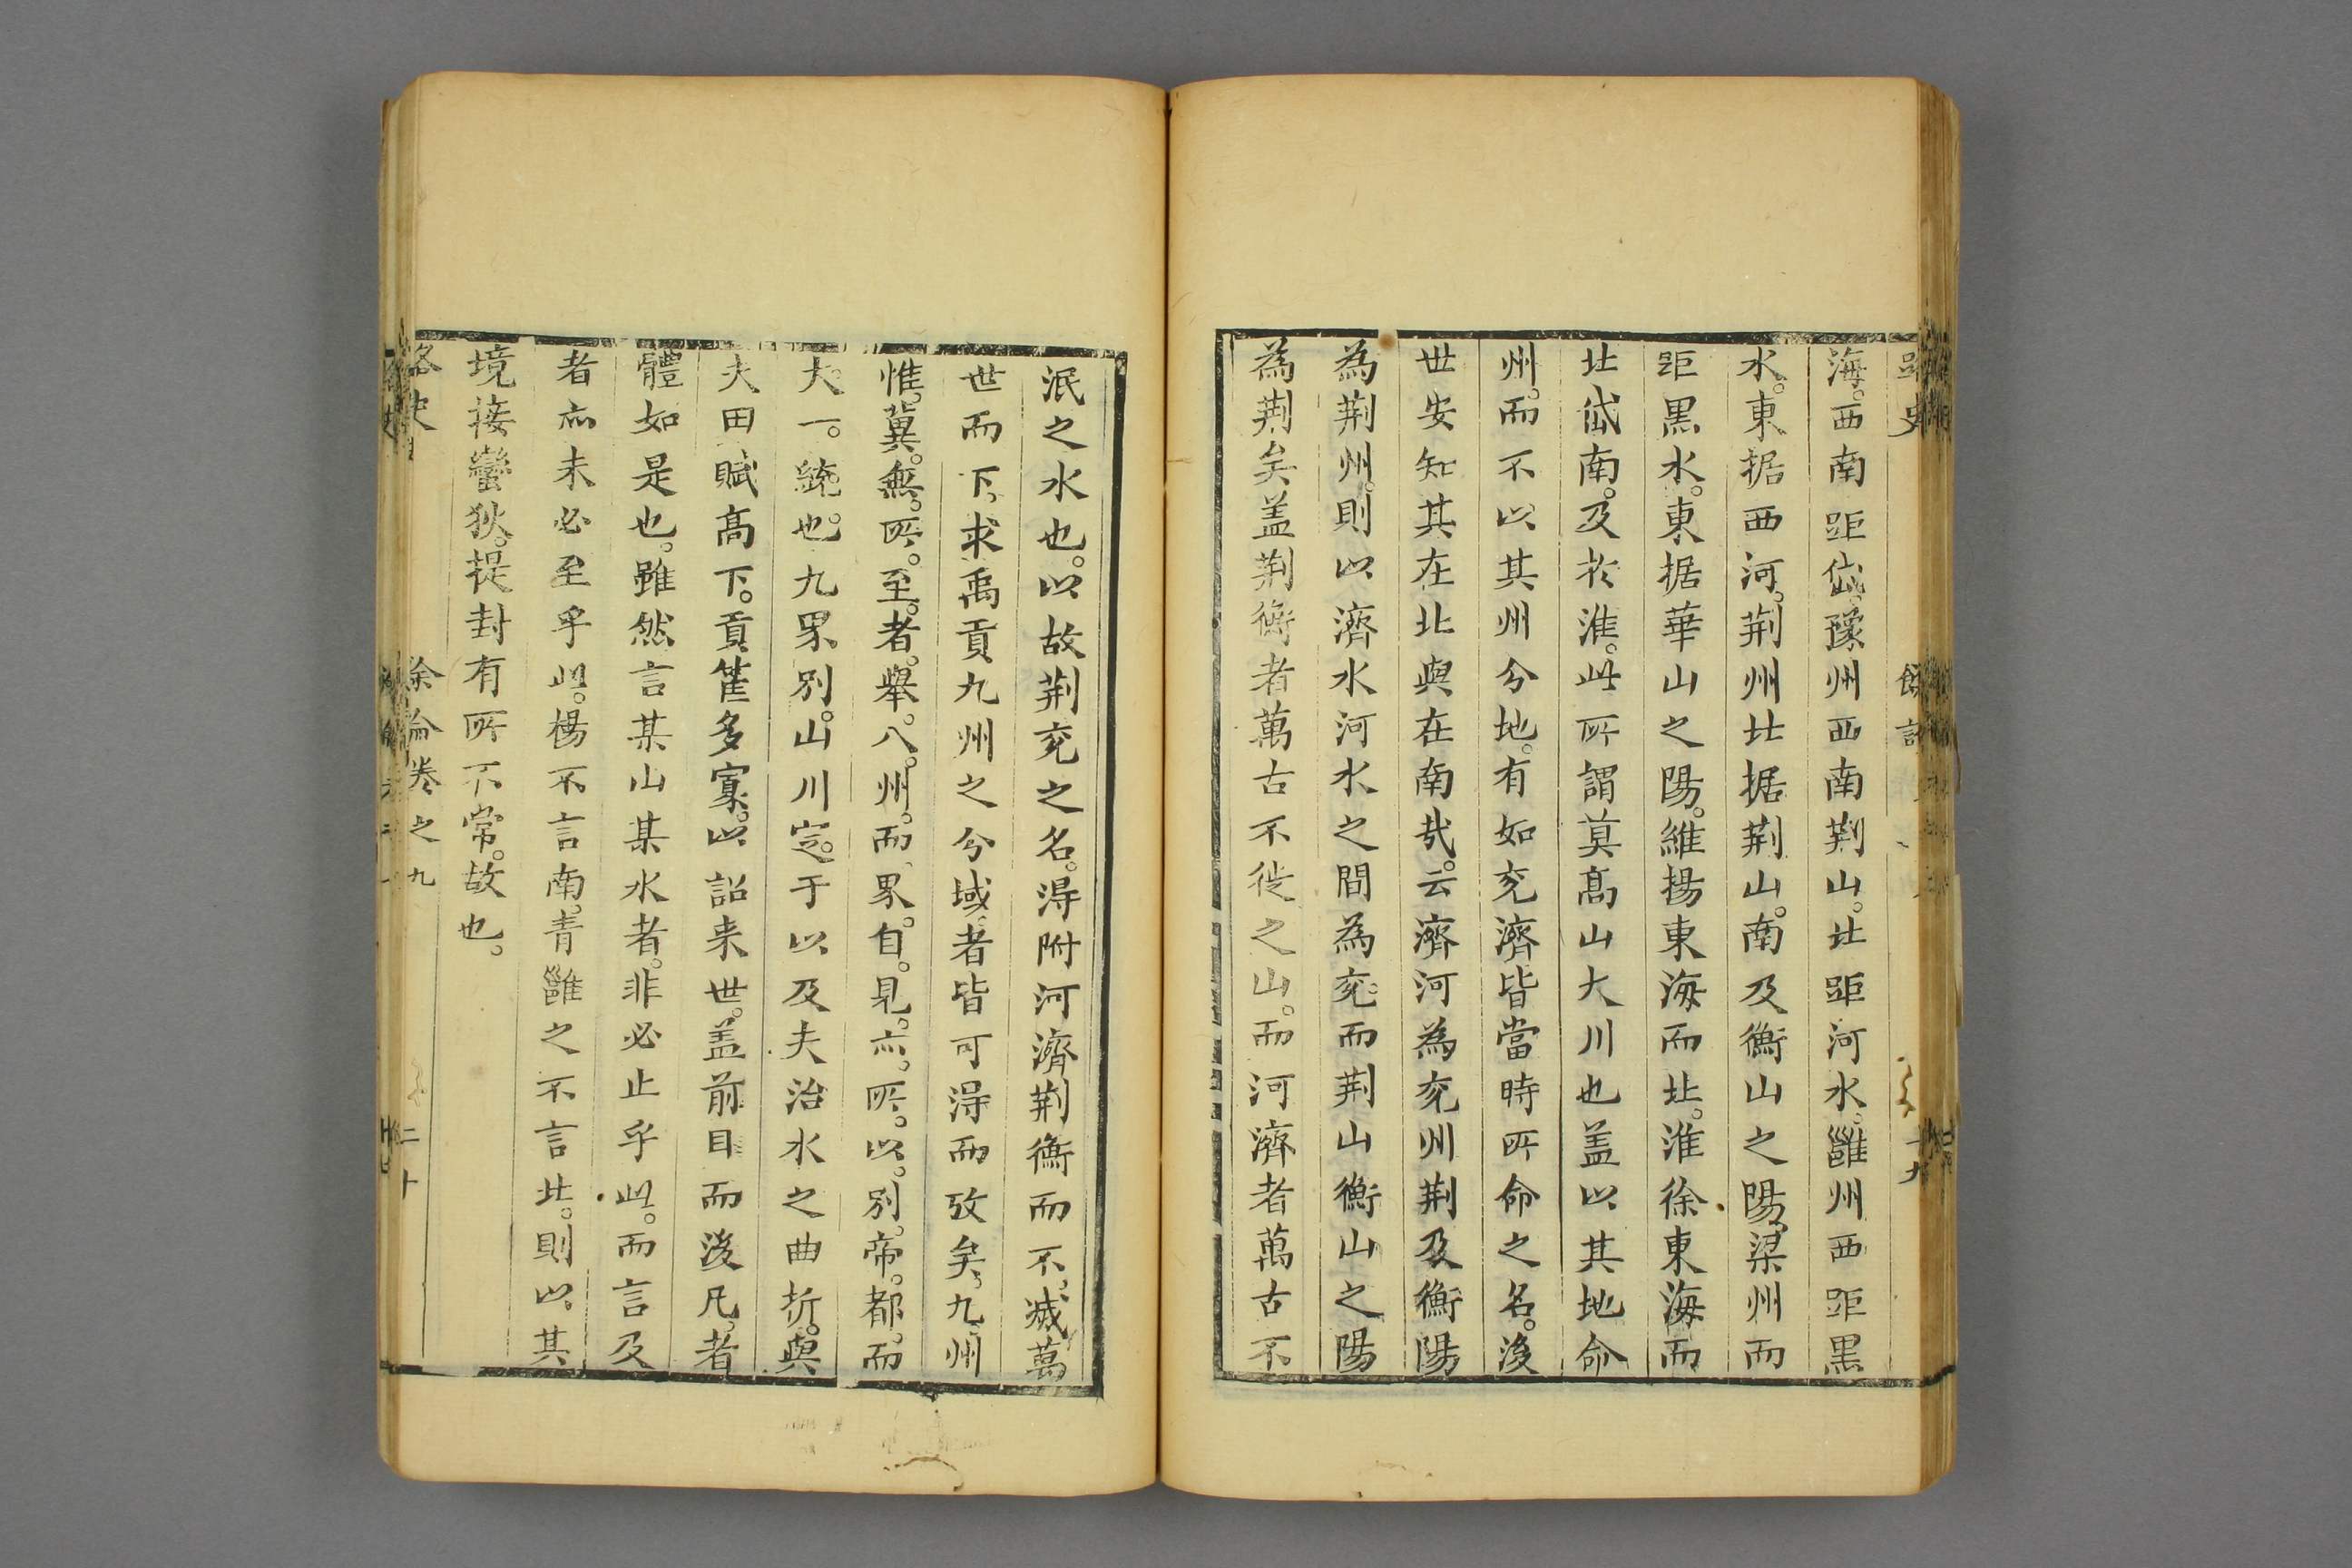 海。西南距岱。豫州西南荆山。北距河水。雝州西距黑
水。東据西河。荆州北据荆山。南及衡山之陽。梁州而
距黒水。東据華山之陽。維揚東海而北。淮徐東海而
北岱南。及於淮。此所謂莫髙山大川也盖以其地命
州。而不以其州分地。有如兖濟皆當時所命之名。後
世安知其在北與在南㢤。云濟河為兖州荆及衡陽
為荆州。則以濟水河水之間為兖。而荆山衡山之陽
為荆矣盖荆衡者萬古不徙之山。而河濟者萬古不
泯之水也。以故荆兖之名。得附河濟荆衡而不、滅、萬
世而下、求禹貢九州之分域、者皆可得而攷矣、九、州
惟。冀。無。所。至。者。舉。八。州。而、界。自。見。亦。所。以。別。帝。都。而
大。一。統。也。九界別。山川定。于以及夫治水之曲折。與
夫田賦髙下。貢篚多寡。以詔来世。盖前目而後凡、者
體如是也。雖然言某山某水者。非必止乎此。而言及
者亦未必至乎此。楊不言南。青雝之不言北。則以其
境接蠻狄。提封有所不常。故也。
路史
餘論卷之九
二十